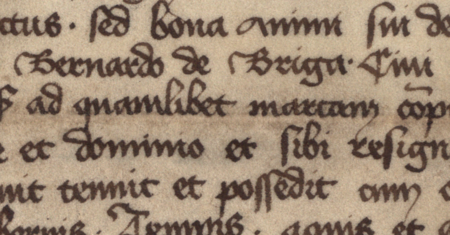 ctus. sed bona animi sui de
Bernardo de Briga. Civi
ad quamlibet marcam
et dominio et sibi resign
tenuit et possedit cum